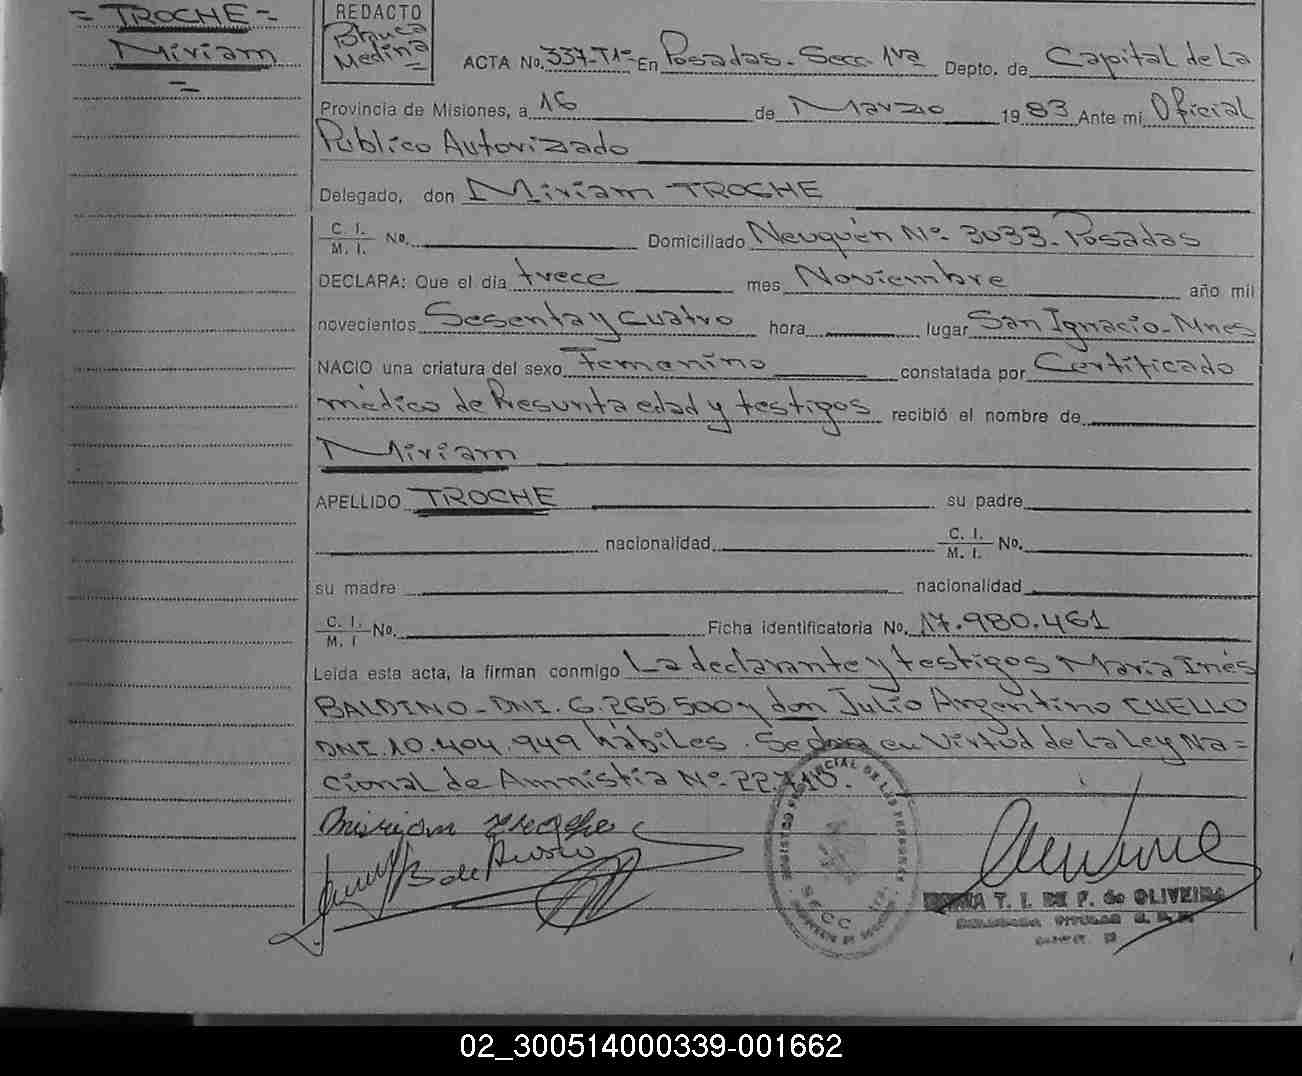 = TROCHE =
Miriam
=
REDACTO
Blanca
Medina
ACTA No. 337-T1º En Posadas - Secc. 1ra Depto. de Capital de La
Provincia de Misiones, a 16 de Marzo 1983 Ante mi Oficial
Público Autorizado
Delegado, don Miriam TROCHE
C. I.
M. I. No. Domiciliado Neuquén Nº 3033 - Posadas
DECLARA: Que el día trece mes Noviembre año mil
novecientos Sesenta y Cuatro hora lugar San Ignacio - Mnes
NACIO una criatura del sexo Femenino constatada por Certificado
médico de Presunta edad y testigos recibió el nombre de
Miriam
APELLIDO TROCHE su padre
nacionalidad C. I.
M. I. No.
su madre nacionalidad
C. I.
M. I No. Ficha identificatoria No. 17.980.461
Leída esta acta, la firman conmigo La declarante y testigos María Inés
BALDINO - DNI. 6.265.500 y don Julio Argentino CUELLO
DNI. 10.404.949 hábiles. Se labra en Virtud de La Ley Na=
cional de Amnistía Nº 22.710.
Miriam Troche
T. I. DE F. de OLIVEIRA
02_300514000339-001662